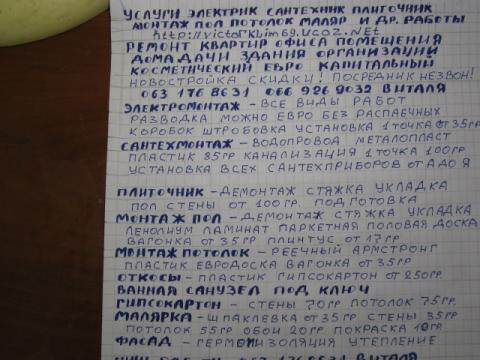 УСЛУГИ ЭЛЕКТРИК САНТЕХНИК ПЛИТОЧНИК
МОНТАЖ ПОЛ ПОТОЛОК МАЛЯР И ДР. РАБОТЫ
http://victorklim69.ucoz.NEt
РЕМОНТ КВАРТИР ОФИСА ПОМЕЩЕНИЯ
ДОМА ДАЧИ ЗДАНИЯ ОРГАНИЗАЦИИ
КОСМЕТИЧЕСКИЙ ЕВРО КАПИТАЛЬНЫЙ
НОВОСТРОЙКА СКИДКИ! ПОСРЕДНИК НЕ ЗВОН!
063 176 8631 066 926 9032 ВИТАЛЯ
ЭЛЕКТРОМОНТАЖ - ВСЕ ВИДЫ РАБОТ
РАЗВОДКА МОЖНО ЕВРО БЕЗ РАСПАЕЧНЫХ
КОРОБОК ШТРОБОВКА УСТАНОВКА 1 ТОЧКА ОТ 35ГР
САНТЕХМОНТАЖ - ВОДОПРОВОД МЕТАЛОПЛАСТ
ПЛАСТИК 85ГР КАНАЛИЗАЦИЯ 1 ТОЧКА 100ГР
УСТАНОВКА ВСЕХ САНТЕХПРИБОРОВ ОТ А ДО Я
ПЛИТОЧНИК - ДЕМОНТАЖ СТЯЖКА УКЛАДКА
ПОЛ СТЕНЫ ОТ 100ГР. ПОДГОТОВКА
МОНТАЖ ПОЛ - ДЕМОНТАЖ СТЯЖКА УКЛАДКА
ЛЕНОЛИУМ ЛАМИНАТ ПАРКЕТНАЯ ПОЛОВАЯ ДОСКА
ВАГОНКА ОТ 35ГР ПЛИНТУС ОТ 17ГР
МОНТАЖ ПОТОЛОК - РЕЕЧНЫЙ АРМСТРОНГ
ПЛАСТИК ЕВРОДОСКА ВАГОНКА ОТ 35ГР
ОТКОСЫ - ПЛАСТИК ГИПСОКАРТОН ОТ 250ГР.
ВАННАЯ САНУЗЕЛ ПОД КЛЮЧ
ГИПСОКАРТОН - СТЕНЫ 70ГР ПОТОЛОК 75ГР.
МАЛЯРКА - ШПАКЛЕВКА ОТ 35ГР СТЕНЫ 35
ПОТОЛОК 55ГР ОБОИ 20ГР ПОКРАСКА 10ГР.
ФАСАД - ГЕРМЕТИЗОЛЯЦИЯ УТЕПЛЕНИЕ
ВИТАЛЯ